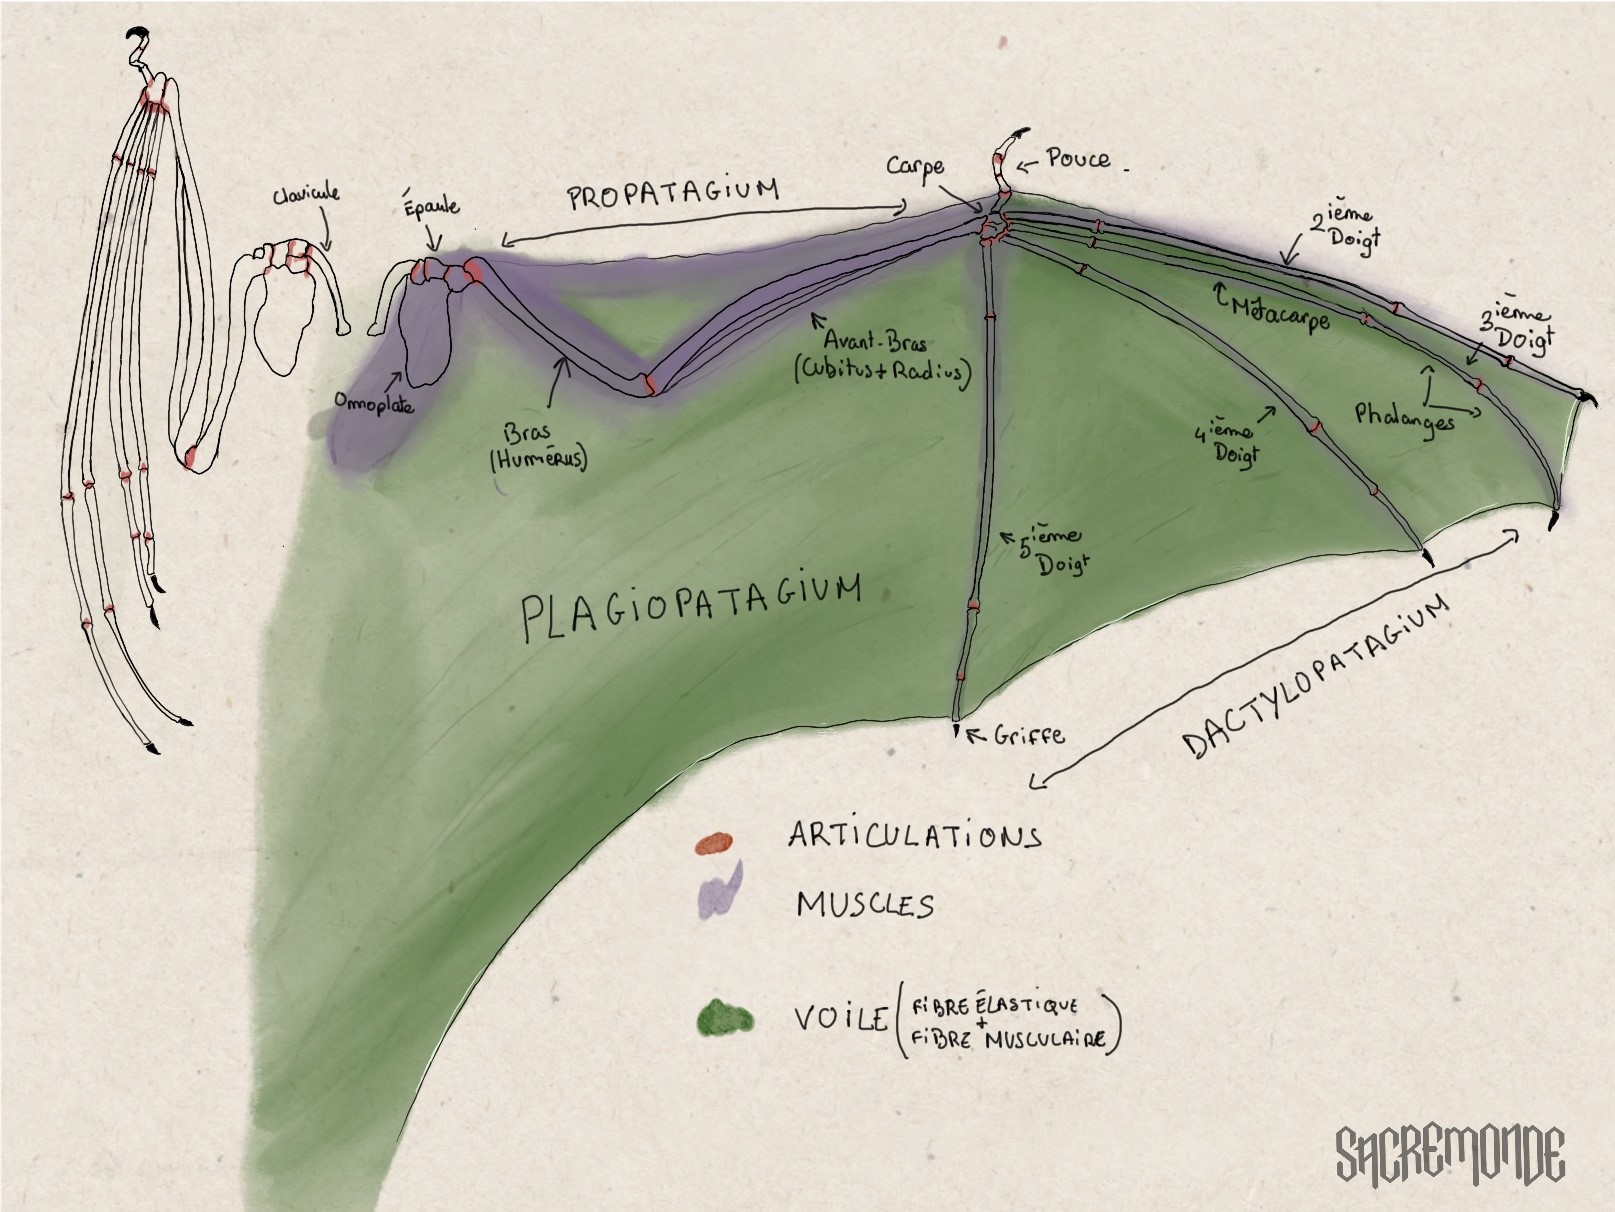 Clavicule
Épaule
PROPATAGIUM
Carpe
Pouce
2ième
Doigt
3ième
Doigt
Métacarpe
Avant-Bras
(Cubitus + Radius)
Omoplate
Bras
(Humérus)
4ième
Doigt
Phalanges
5ième
Doigt
PLAGIOPATAGIUM
Griffe
DACTYLOPATAGIUM
ARTICULATIONS
MUSCLES
VOILE (FIBRE ÉLASTIQUE
+
FIBRE MUSCULAIRE)
SACREMONDE